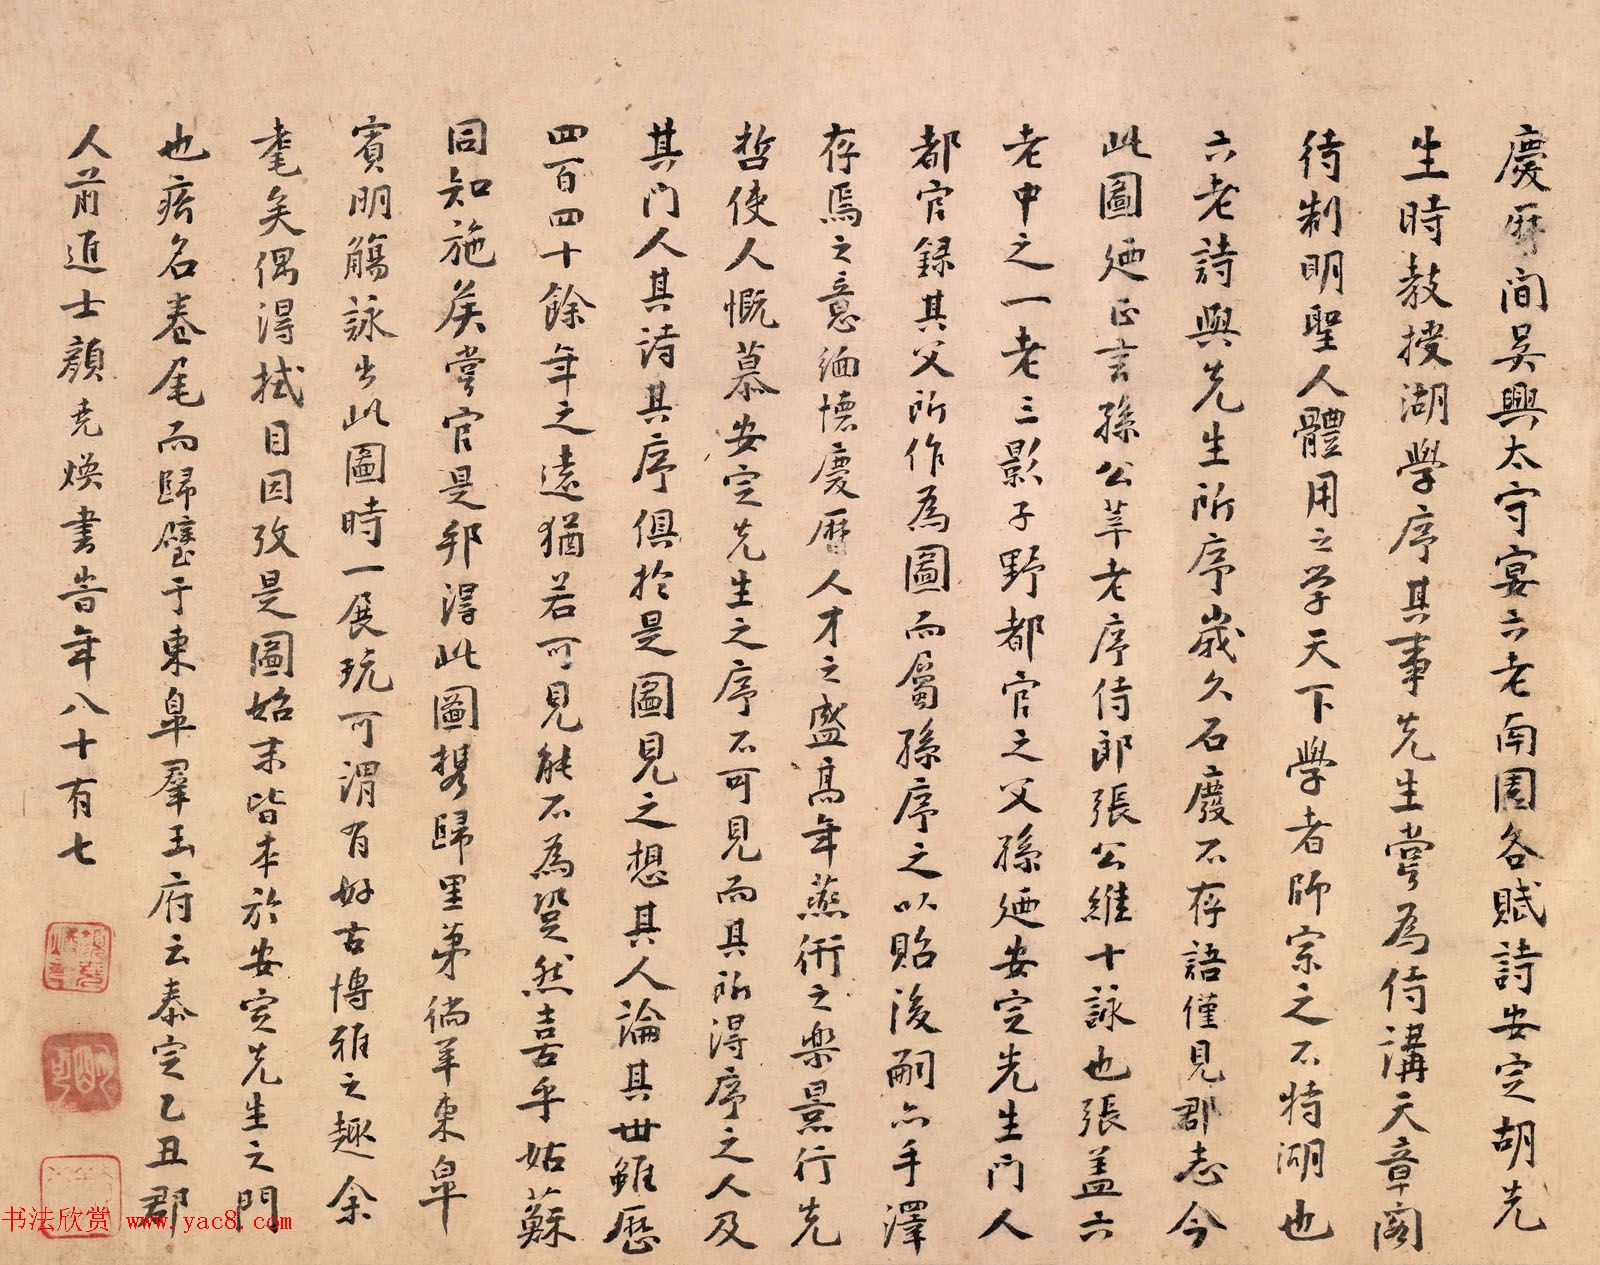 慶曆間吳興太守宴六老南園各賦詩安定胡先
生時教授湖學序其事先生嘗為侍講天章閣
待制明聖人體用之学天下學者師宗之不特湖也
六老詩與先生所序歲久石廢不存語僅見郡志今
此圖廼正言孫公莘老序侍郎張公維十詠也張盖六
老中之一老三影子野都官之父孫廼安定先生門人
都官録其父所作為圖而屬孫序之以貽後嗣亦手澤
存焉之意緬懷慶曆人才之盛高年燕衎之樂景行先
哲使人慨慕安定先生之序不可見而其所得序之人及
其門人其诗其序俱於是圖見之想其人論其世雖歷
四百四十餘年之遠猶若可見能不為跫然喜乎姑蘇
同知施矦嘗官是邦得此圖携歸里第徜羊東臯
賓明觴詠出此圖時一展玩可謂有好古博雅之趣余
耄矣偶得拭目因攷是圖始末皆本於安定先生之門
也疥名卷尾而歸璧于東臯羣玉府云泰定乙丑郡
人前進士顏堯煥書峕年八十有七
书法欣赏 www.yac8.com